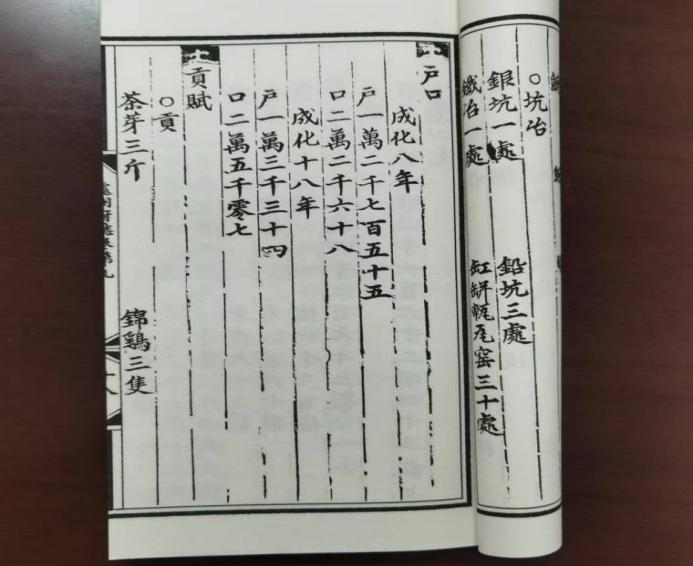 ○坑冶
銀坑一處 鉛坑三處
鐵冶一處 缸缾甎瓦窑三十處
戸口
成化八年
戸一萬二千七百五十五
口二萬二千六十八
成化十八年
戸一萬三千三十四
口二萬五千零七
貢賦
○貢
茶芽三斤 錦鷄三隻
處州府志卷第九